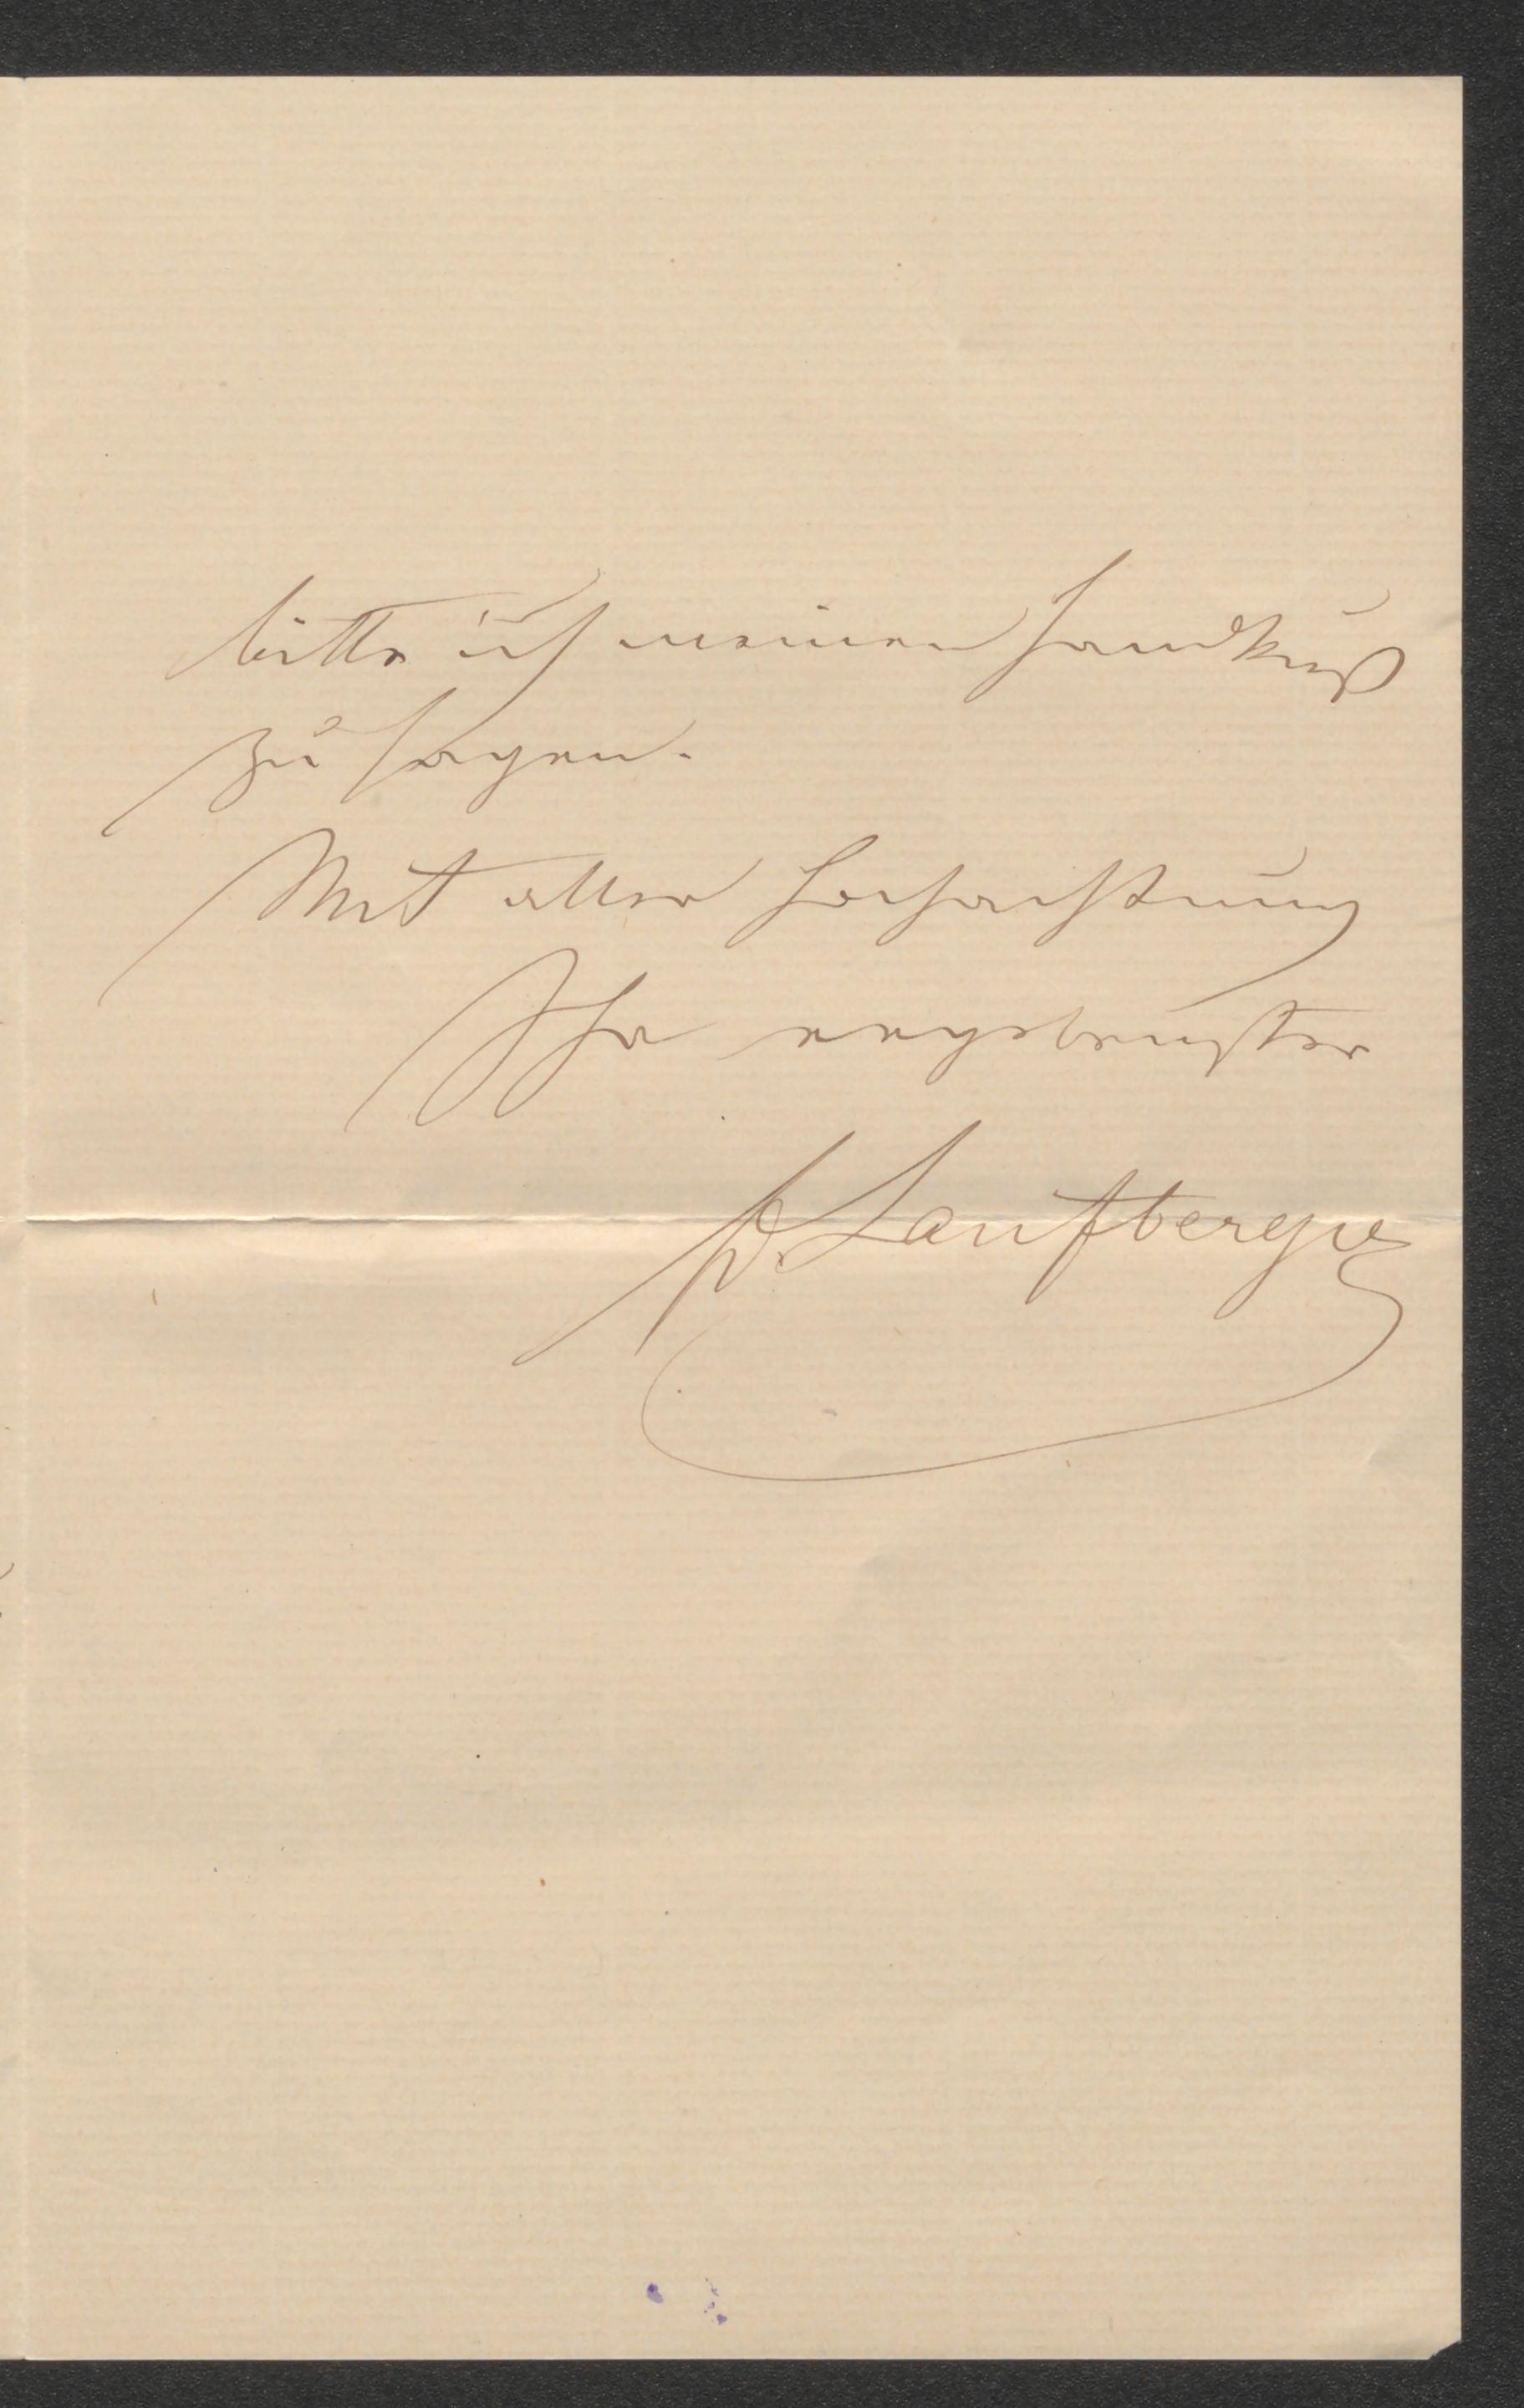 bitte ich meinen Handkuß
zu sagen.
Mit aller Hochachtung
Ihr ergebenster
F. Laufberger